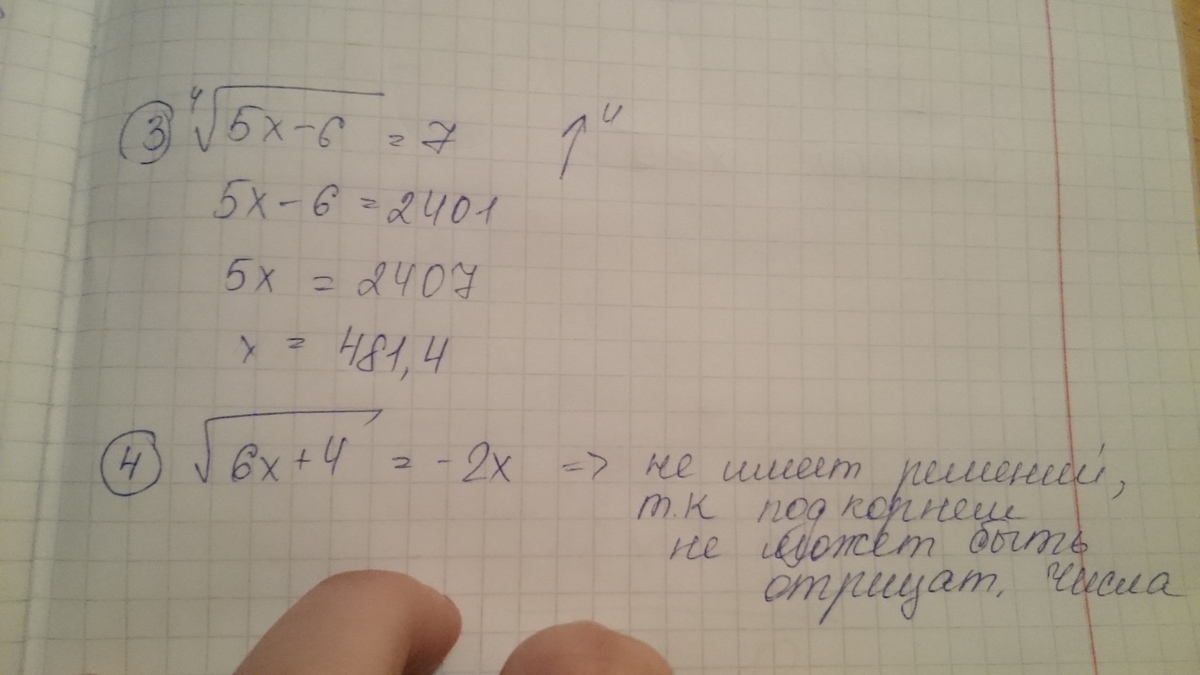 ③ ⁴√(5x-6) = 7 ↑⁴
5x-6 = 2401
5x = 2407
x = 481,4
④ √(6x+4) = -2x => не имеет решений,
т.к под корнем
не может быть
отрицат. числа